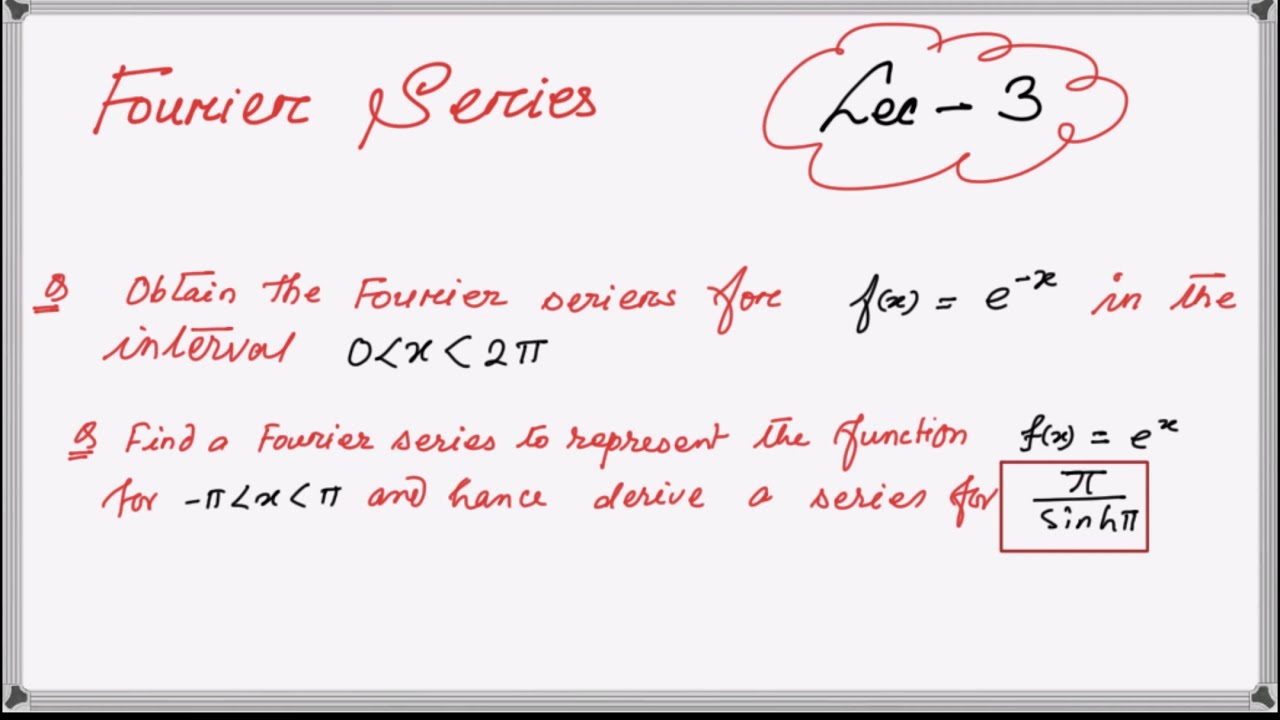 Fourier Series
Lec - 3
Q Obtain the Fourier seriers for f(x) = e^-x in the
interval 0<x<2π
Q Find a Fourier series to represent the function f(x) = e^x
for -π<x<π and hance derive a series for π/sinhπ